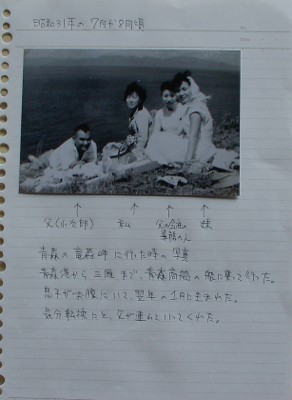 昭和31年の7月か8月頃
父(小太郎) 私 父の会社の 妹
事務の人
青森の竜飛岬に行った時の写真
青森港から三厩まで、青森商船の船に乗って行った。
息子がお腹にいて、翌年の1月に生まれた。
気分転換にと、父が連れていってくれた。